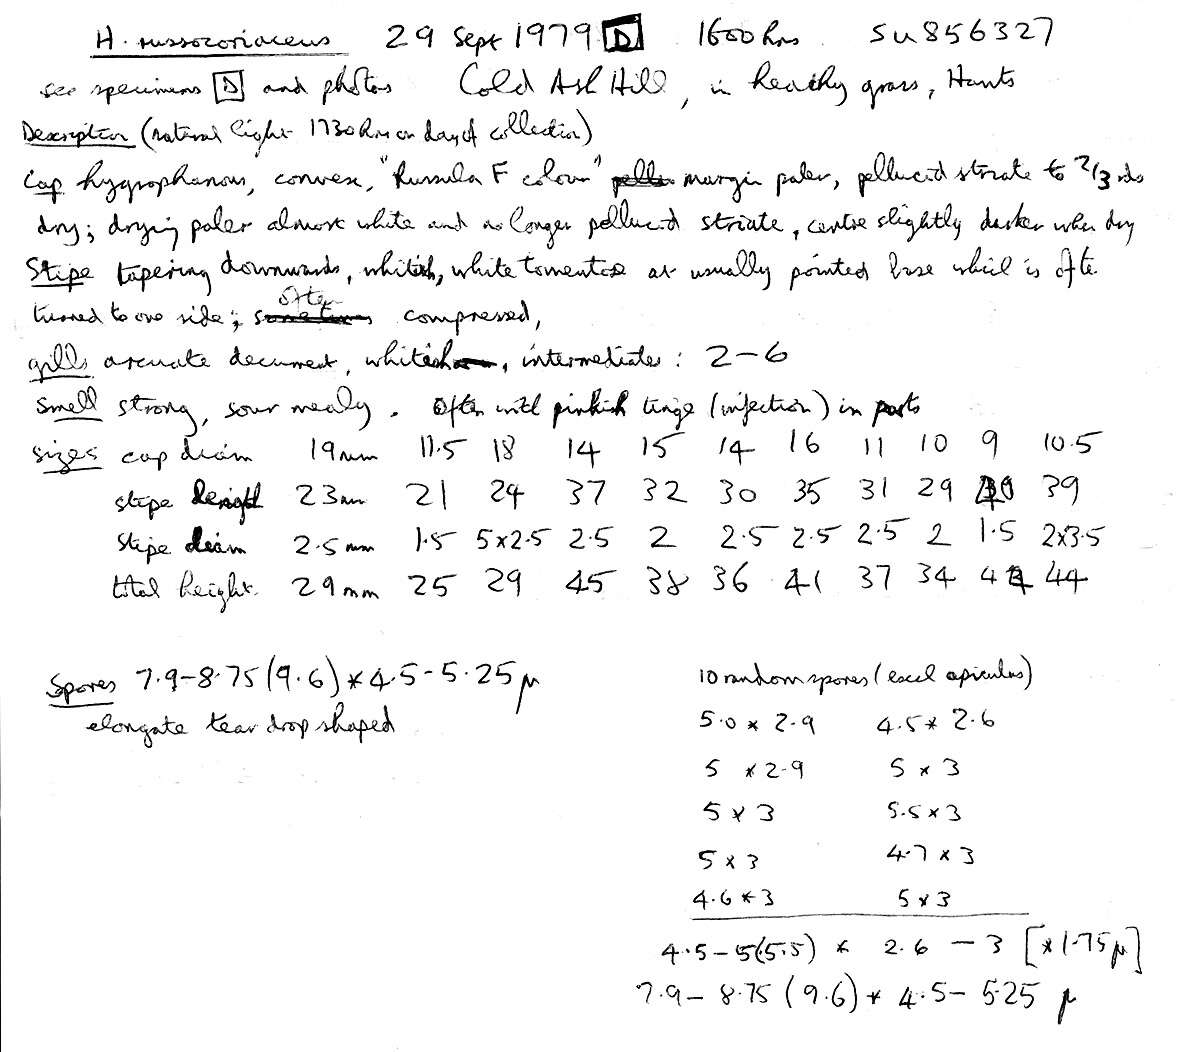 H. russocoriaceus 29 Sept 1979 D 1600 hrs SU856327
see specimens D and photos Cold Ash Hill, in heathy grass, Hants
Description (natural light 1730 hrs on day of collection)
Cap hygrophanous, convex, "Russula F colour" margin paler, pellucid striate to 2/3 rds
dry; drying paler almost white and no longer pellucid striate, centre slightly darker when dry
Stipe tapering downwards, whitish, white tomentose at usually pointed base which is often
turned to one side; often compressed,
gills arcuate decurrent, whitish, intermediates: 2-6
Smell strong, sour mealy. Often with pinkish tinge (infection) in parts
sizes cap diam 19mm 11.5 18 14 15 14 16 11 10 9 10.5
stipe length 23mm 21 24 37 32 30 35 31 29 39
stipe diam 2.5mm 1.5 5x2.5 2.5 2 2.5 2.5 2.5 2 1.5 2x3.5
total height 29mm 25 29 45 38 36 41 37 34 44
Spores 7.9-8.75(9.6)*4.5-5.25μ
elongate tear drop shaped
10 random spores (excl apiculus)
5.0 * 2.9 4.5 * 2.6
5 * 2.9 5 x 3
5 x 3 5.5 x 3
5 x 3 4.7 x 3
4.6 * 3 5 x 3
4.5-5(5.5) * 2.6 - 3 [*1.75μ]
7.9-8.75 (9.6) * 4.5-5.25 μ